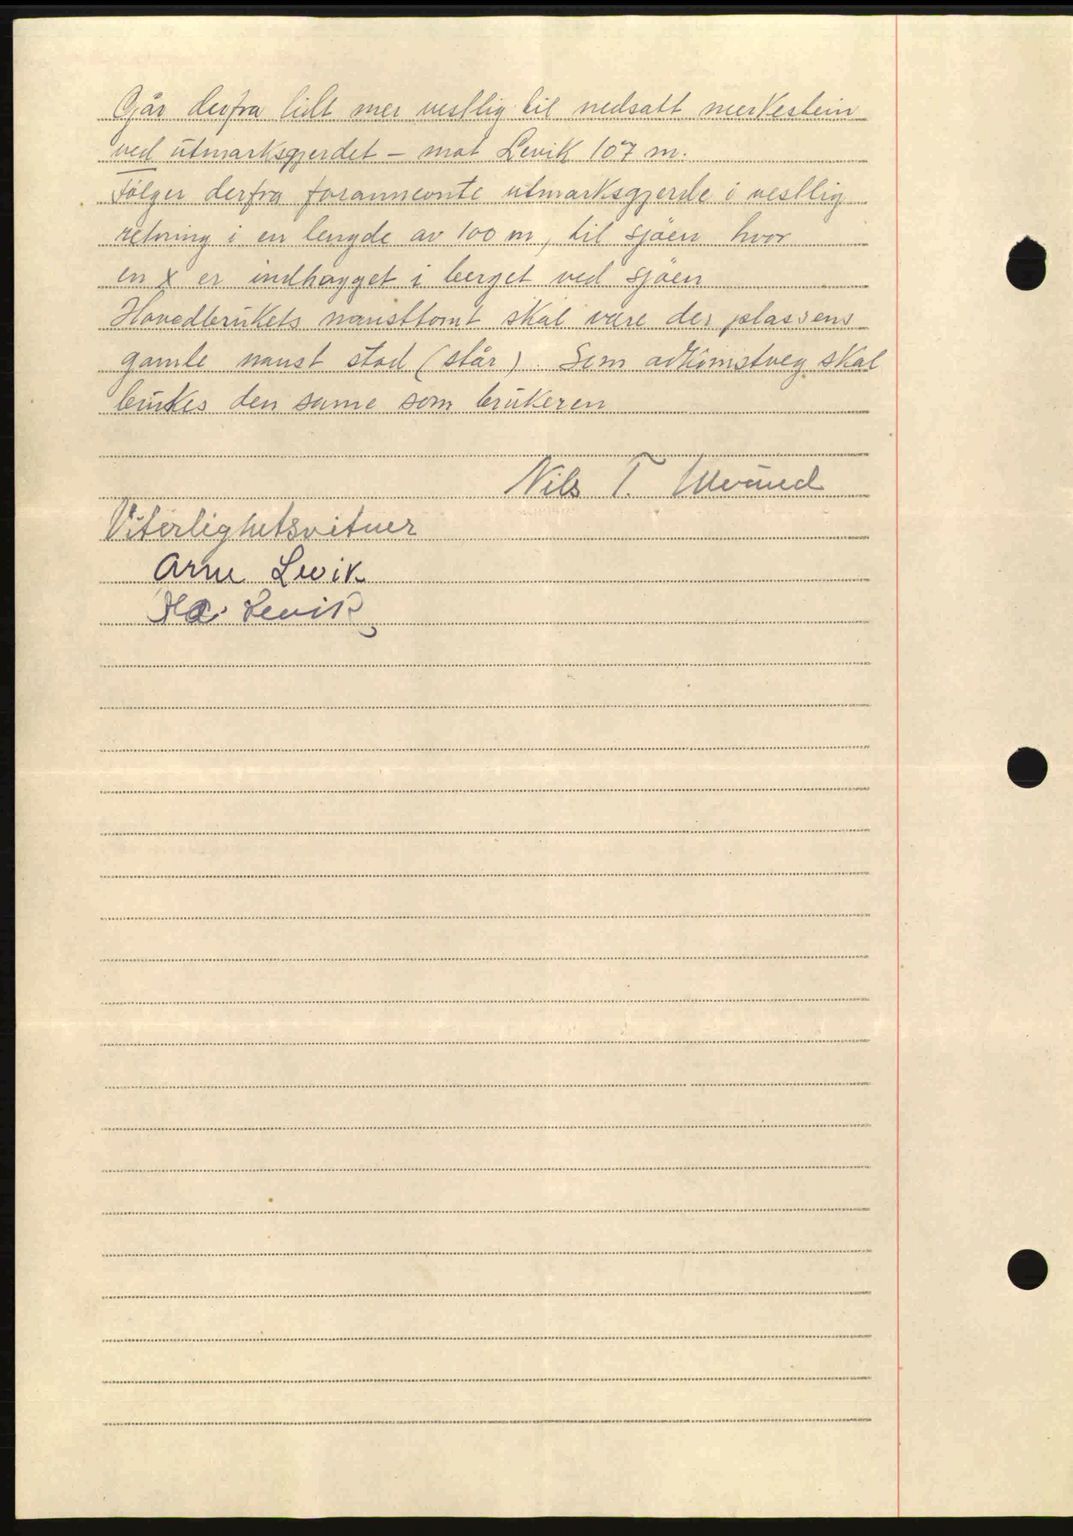 Går derfra lidt mer vestlig til nedsatt merkestein
ved utmarksgjerdet - mot Levik 107 m.
Følger derfra forannevnte utmarksgjerde i vestlig
retning i en lengde av 100 m, til sjøen hvor
en x er indhogget i berget ved sjøen
Hovedbrukets nausttomt skal være der plassens
gamle naust stod (står). Som adkomstveg skal
brukes den same som brukeren
Nils T. Ulvund
Viterlighetsvitner
Arne Levik
Levik